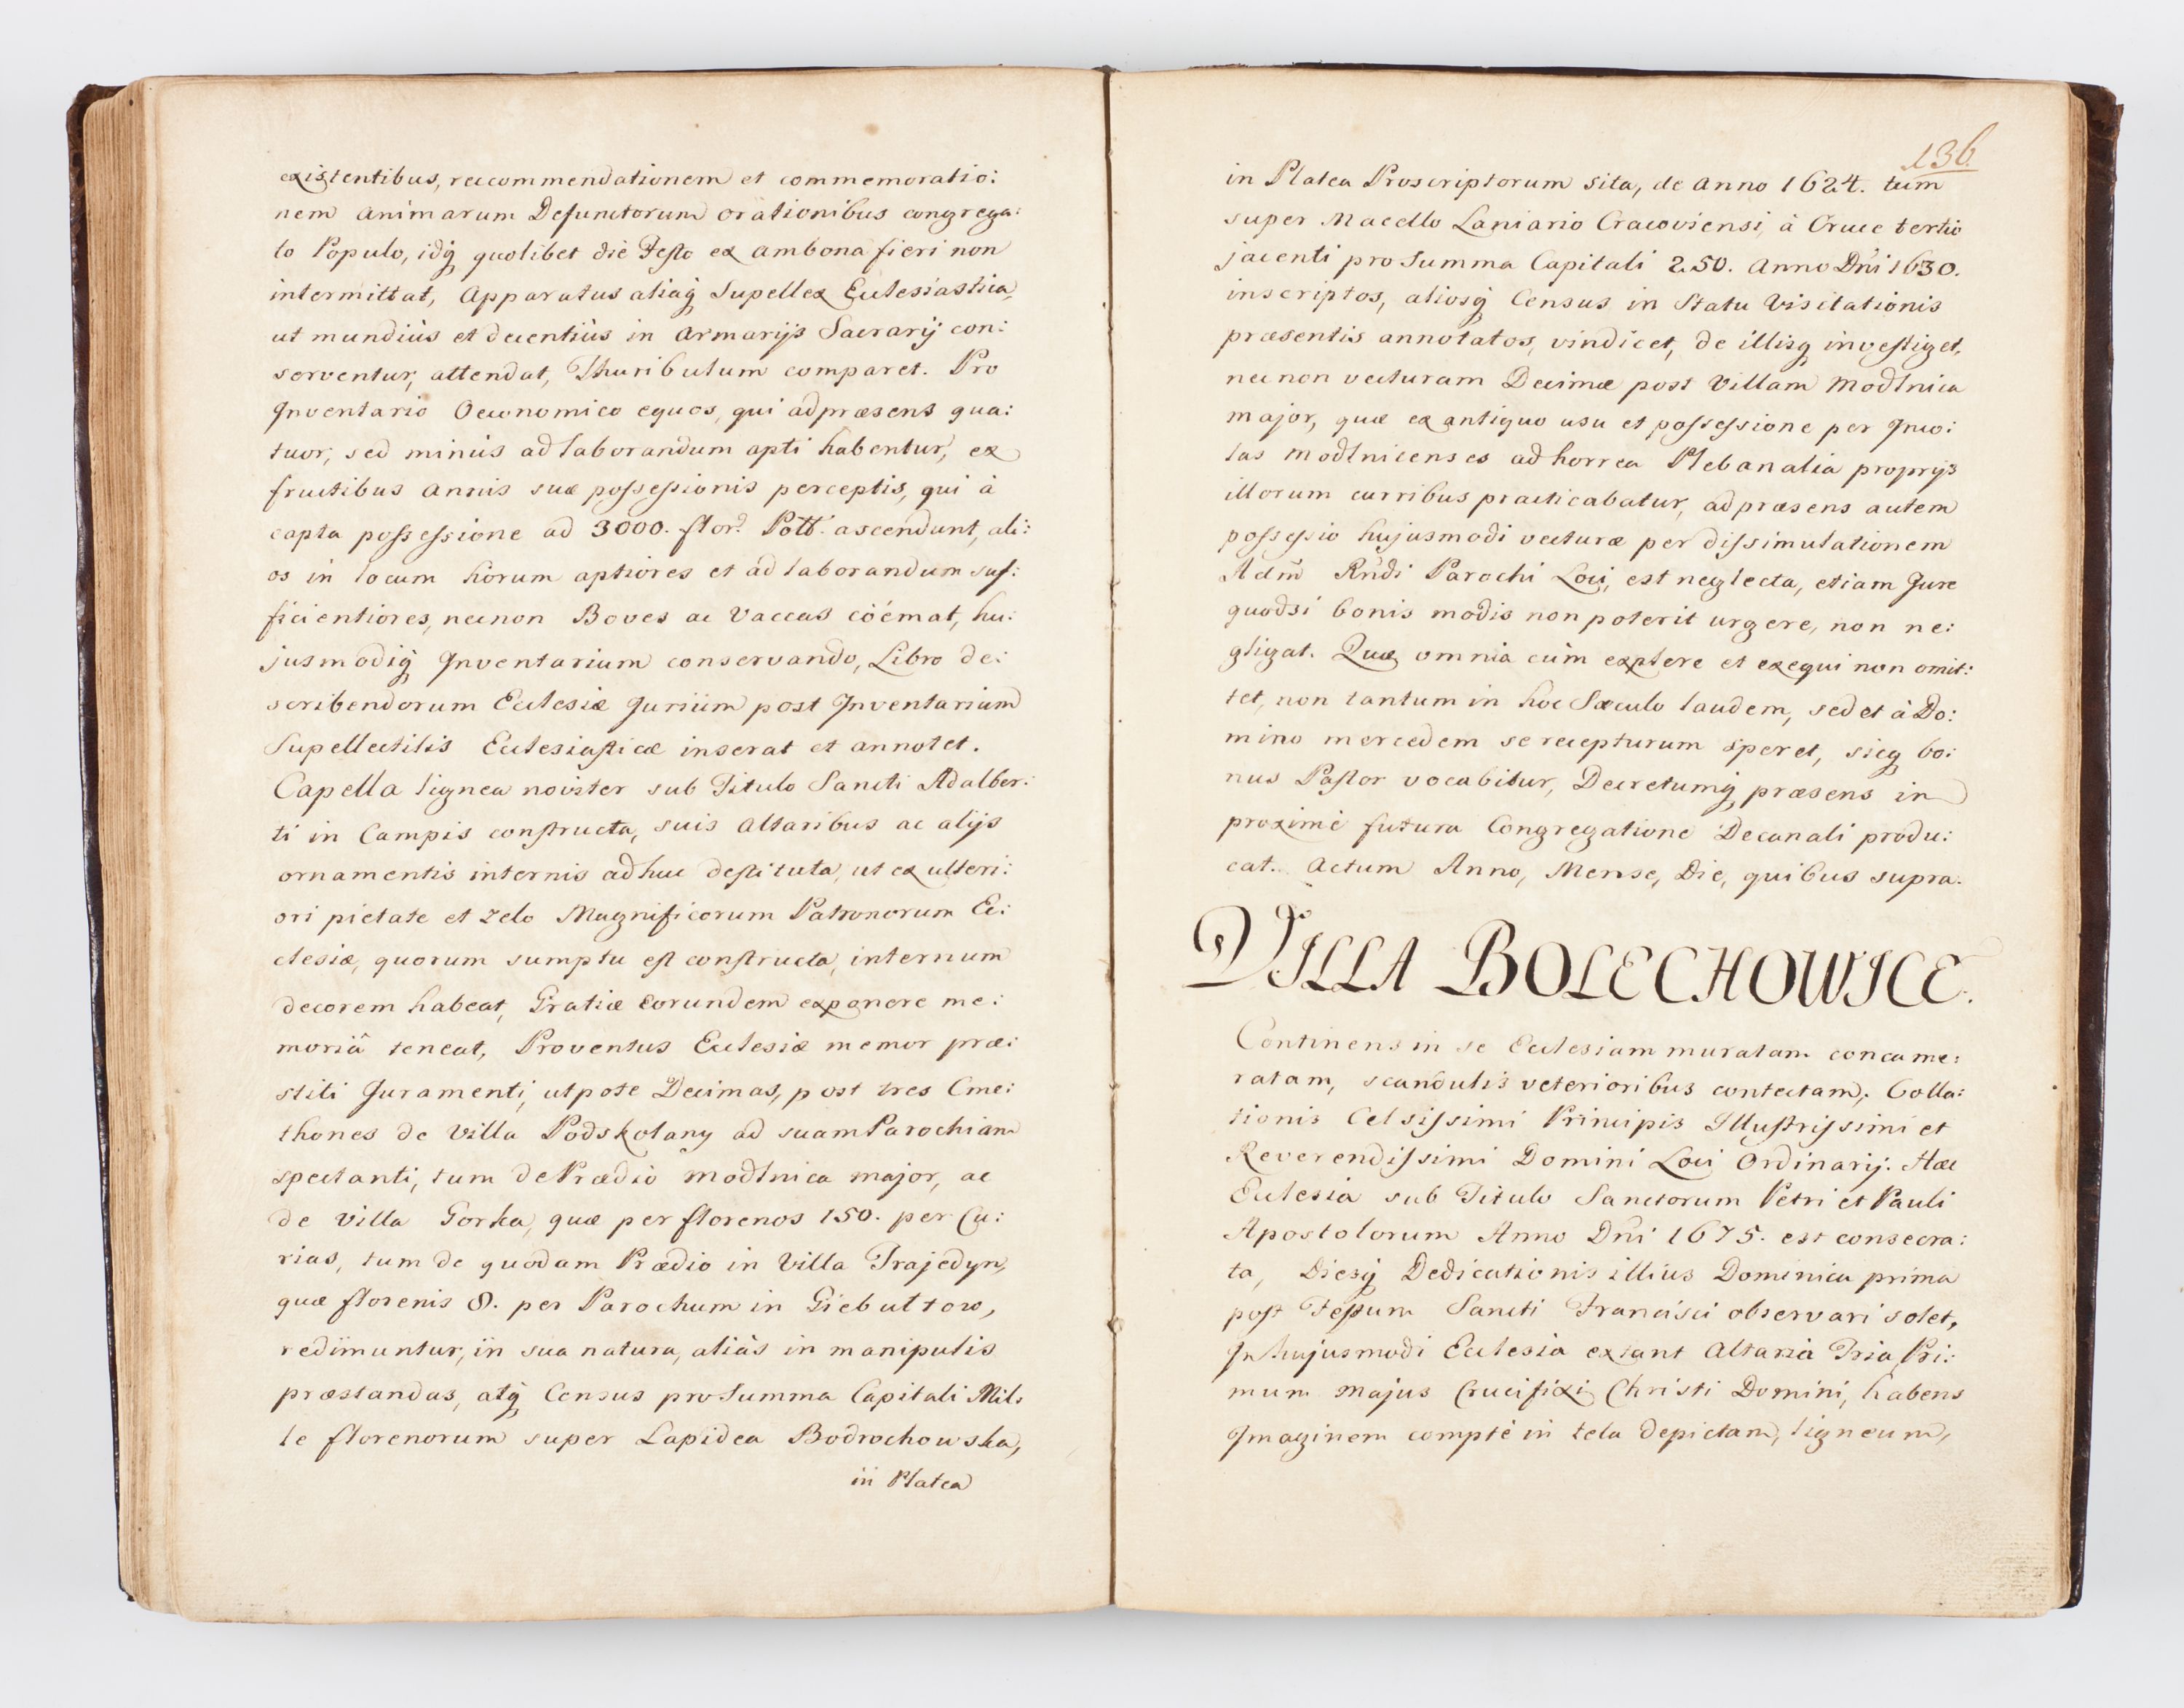 existentibus, reccommendationem et commemoratio:
nem animarum Defunctorum orationibus congrega:
to Populo, idq́ quolibet die Festo ex ambona fieri non
intermittat, Apparatus aliaq́ Supellex Ecclesiastica,
ut mundiùs et decentiùs in Armarijs Sacrarij con:
serventur, attendat, Thuribulum comparet. Pro
Inventario Oeconomico equos, qui ad præsens qua:
tuor, sed minùs ad laborandum apti habentur, ex
fructibus annis suæ possessionis perceptis, qui à
capta possessione ad 3000. flor. Poll. ascendunt, ali:
os in locum horum aptiores et ad laborandum suf:
ficientiores, necnon Boves ac Vaccas cöémat, hu:
jusmodiq́ Inventarium conservando, Libro de:
scribendorum Ecclesiæ Jurium post Inventarium
Supellectilis Ecclesiasticæ inserat et annotet.
Capella lignea noviter sub Titulo Sancti Adalber:
ti in Campis constructa, suis Altaribus ac alijs
ornamentis internis adhuc destituta, ut ex ulteri:
ori pietate et zelo Magnificorum Patronorum Ec:
clesiæ, quorum sumptu est constructa, internum
decorem habeat, Gratiæ Eorundem exponere me:
moriâ teneat, Proventus Ecclesiæ memor præ:
stiti Juramenti, utpote Decimas, post tres Cme:
thones de Villa Podskolany ad suam Parochiam
spectanti, tum de Prædio Modlnica major, ac
de Villa Gorka, quæ per florenos 150. per Cu:
rias, tum de quodam Prædio in Villa Trajedyn,
quæ florenis 8. per Parochum in Giebułtow,
redimuntur, in sua natura, aliàs in manipulis
præstandas, atq́ Census pro Summa Capitali Mil:
le florenorum super Lapidea Bodrochowska,
in Platea
136.
in Platea Proscriptorum sita, de Anno 1624. tum
super Macello Laniario Cracoviensi, à Cruce tertio
jacenti pro Summa Capitali 250. Anno Dni 1630.
inscriptos, aliosq́ Census in Statu Visitationis
præsentis annotatos, vindicet, de illisq́ investiget,
necnon vecturam Decimæ post Villam Modlnica
major, quæ ex antiquo usu et possessione per Inco:
las Modlnicenses ad horrea Plebanalia proprijs
illorum curribus practicabatur, ad præsens autem
possessio hujusmodi vecturæ per dissimulationem
Adm̃ Rñdi Parochi Loci, est neglecta, etiam Jure
quodsi bonis modis non poterit urgere, non ne:
gligat. Quæ omnia cùm explere et exequi non omit:
tet, non tantum in hoc Sæculo laudem, sed et à Do:
mino mercedem se recepturum speret, sicq́ bo:
nus Pastor vocabitur, Decretumq́ præsens in
proximè futura Congregatione Decanali produ:
cat. Actum Anno, Mense, Die, quibus supra.
VILLA BOLECHOWICE.
Continens in se Ecclesiam muratam concame:
ratam, scandulis veterioribus contectam, Colla:
tionis Celsissimi Principis Illustrissimi et
Reverendissimi Domini Loci Ordinarij. Hæc
Ecclesia sub Titulo Sanctorum Petri et Pauli
Apostolorum Anno Dni 1675. est consecra:
ta, Diesq́ Dedicationis illius Dominica prima
post Festum Sancti Francisci observari solet.
In hujusmodi Ecclesia extant Altaria Tria, Pri:
mum majus Crucifixi Christi Domini, habens
Imaginem comptè in tela depictam, ligneum,